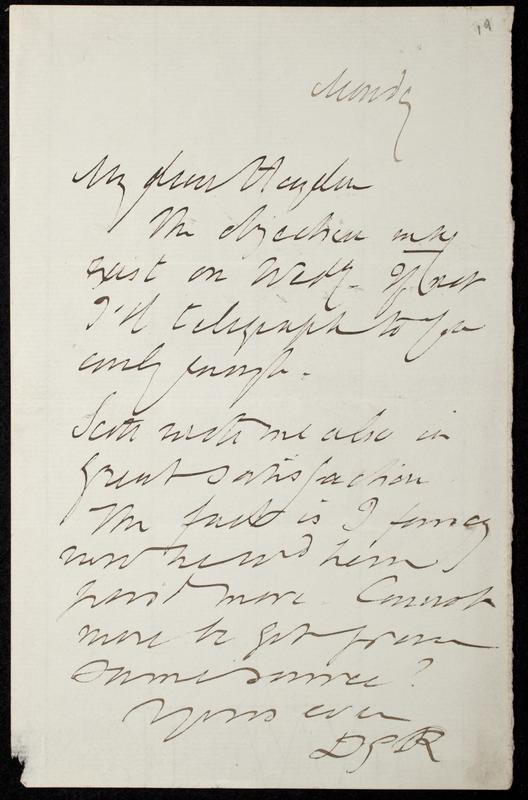 19
Monday
My dear Haydon
The objection may
exist on Wedy. If not
I'll telegraph to you
early enough.
Scott wrote me also in
great satisfaction
The fact is I fancy
now he wd have
paid more. Cannot
more be got from
same source?
Yours ever
DGR